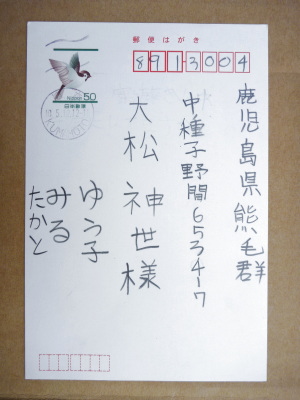 郵便はがき
8913004
NIPPON
50
日本郵便
鹿児島県熊毛群
中種子野間6534-17
大松神世様
ゆう子
みる
たかと